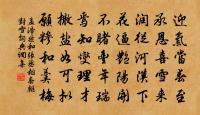 迎氣當春至
承恩喜雪來
潤從河漢下
花逼艷陽開
不睹豐年瑞
焉知燮理才
撒鹽如可擬
願糝和羹梅
孟浩然和張丞相春朝
對雪詞典網集